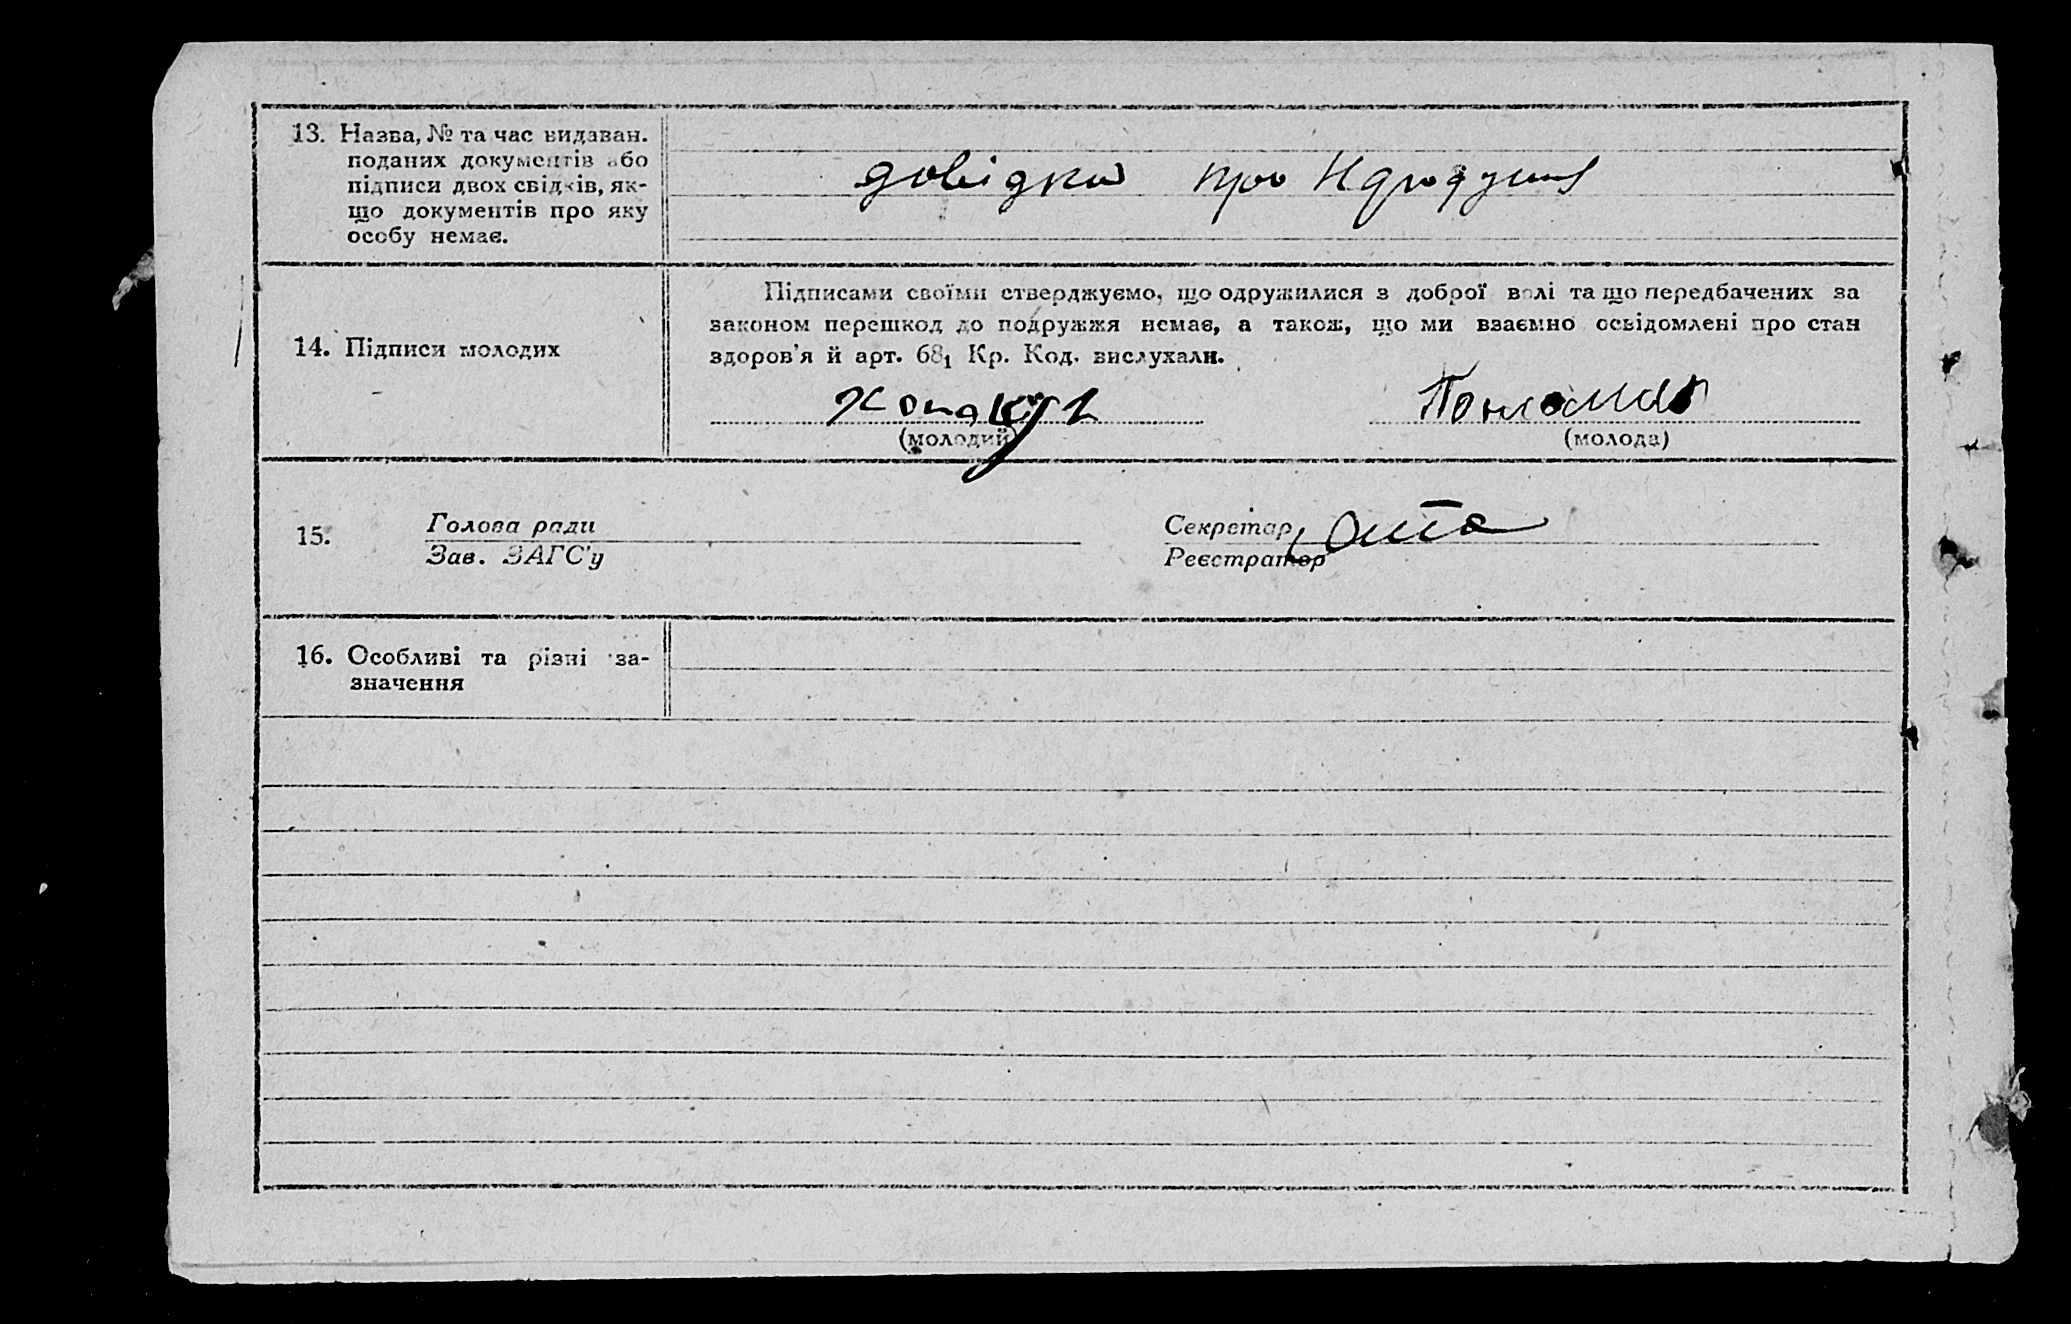 13. Назва, № та час видаван.
поданих документів або
підписи двох свідків, як-
що документів про яку
особу немає.
довідки про
14. Підписи молодих
Підписами своїми стверджуємо, що одружилися з доброї волі та що передбачених за
законом перешкод до подружжя немає, а також, що ми взаємно освідомлені про стан
здоров'я й арт. 68₁ Кр. Код. вислухали.
(молодий)
(молода)
15.
Голова ради
Зав. ЗАГС'у
Секретар
Реєстратор
16. Особливі та різні за-
значення